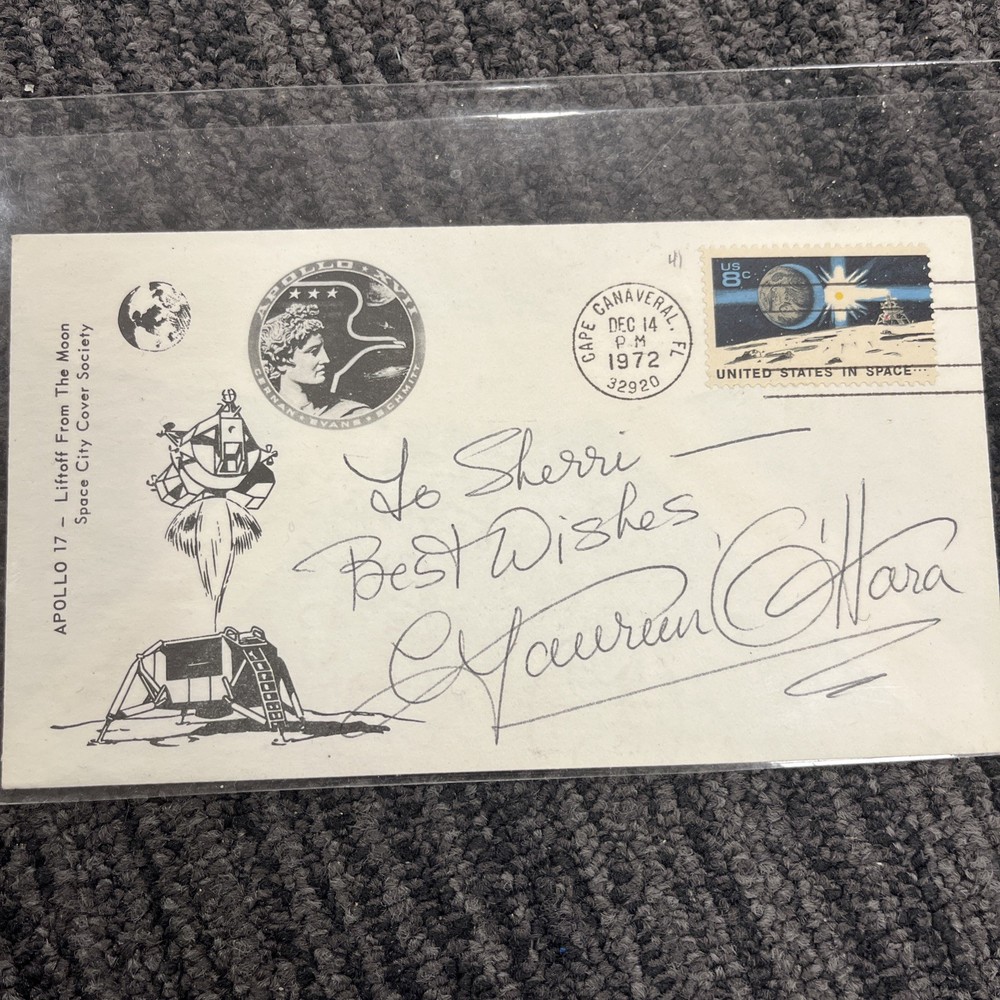 APOLLO 17 – Liftoff From The Moon
Space City Cover Society
APOLLO XVII
CERNAN EVANS SCHMITT
41
CAPE CANAVERAL, FL
DEC 14
PM
1972
32920
US
8c
UNITED STATES IN SPACE...
To Sherri —
Best Wishes
Maureen O'Hara